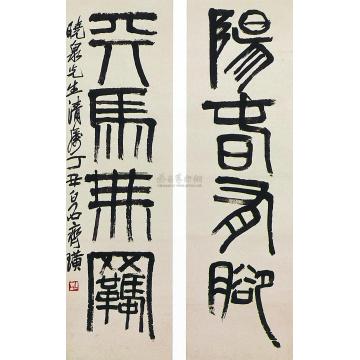 陽春有腳
天馬無羈
曉泉先生清屬丁丑白石齊璜